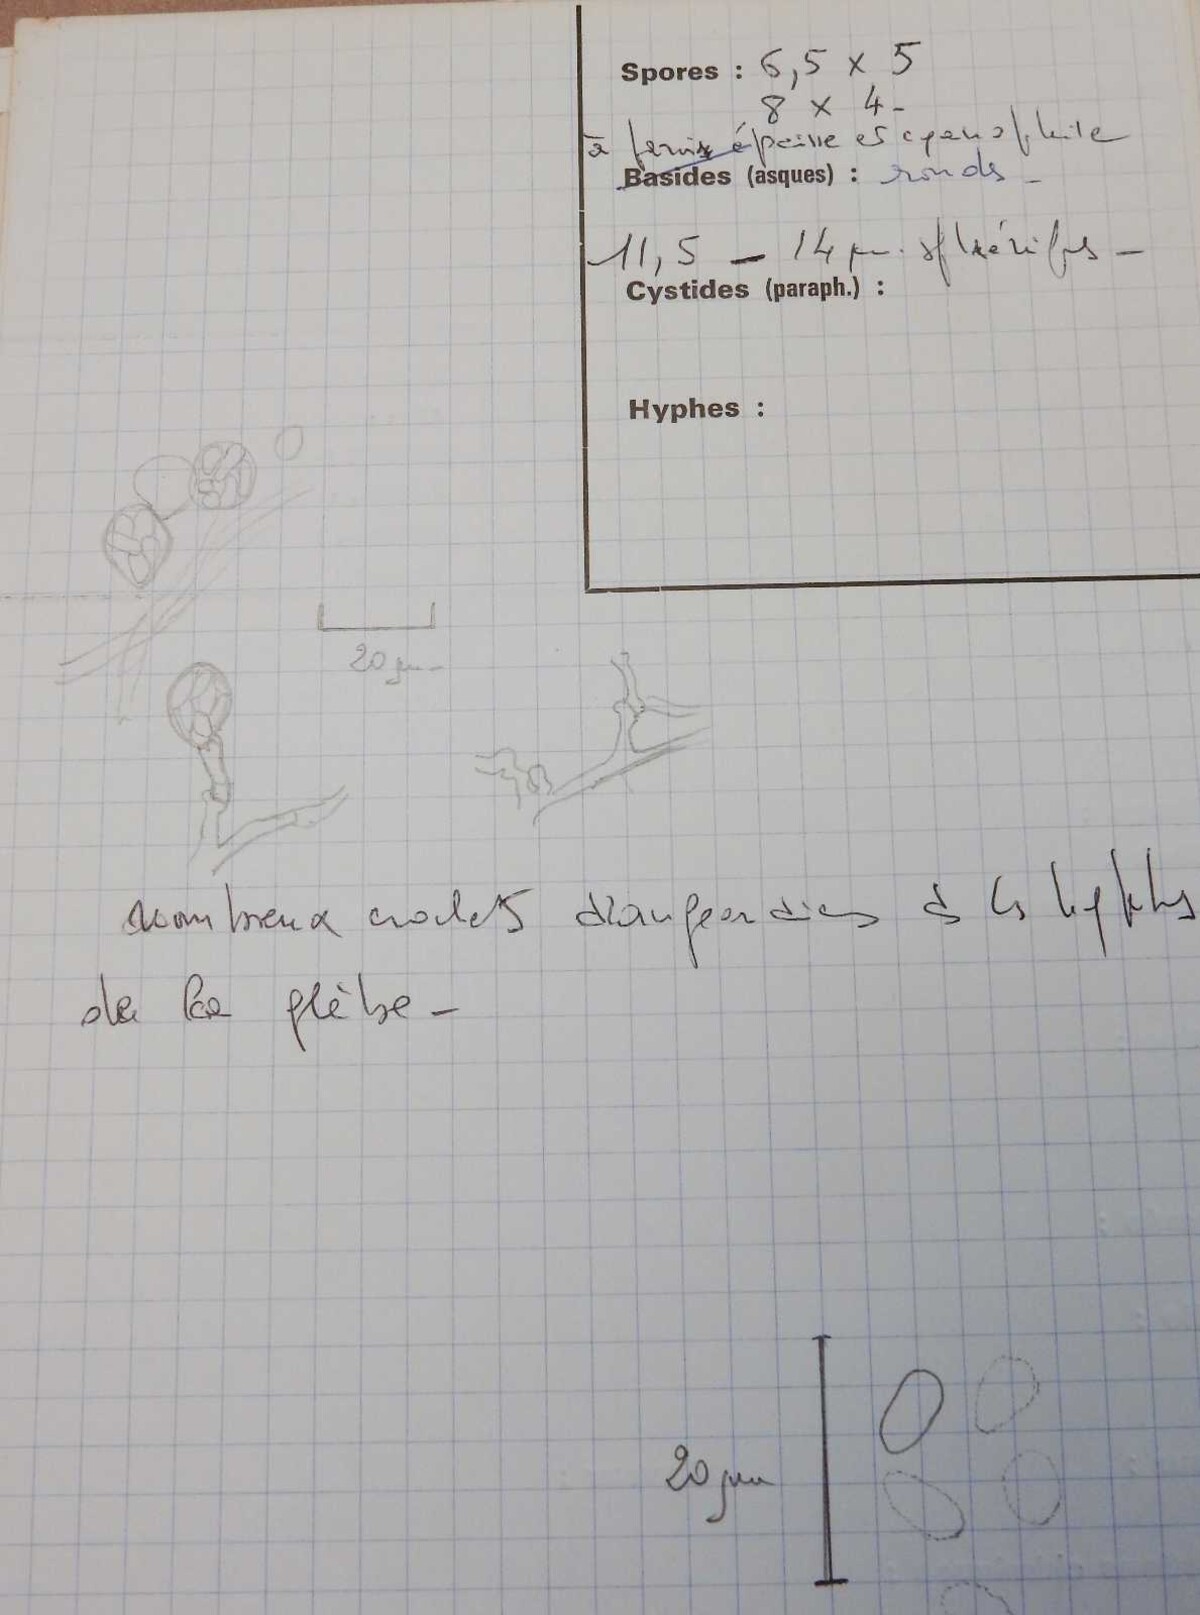 Spores : 6,5 x 5
8 x 4 -
à paroi épaisse et cyanophile
Basides (asques) : ronds -
11,5 - 14 µm. sphériques -
Cystides (paraph.) :
Hyphes :
20 µm -
nombreux crochets dangeardiens à les hyphes
de la glèbe -
20 µm